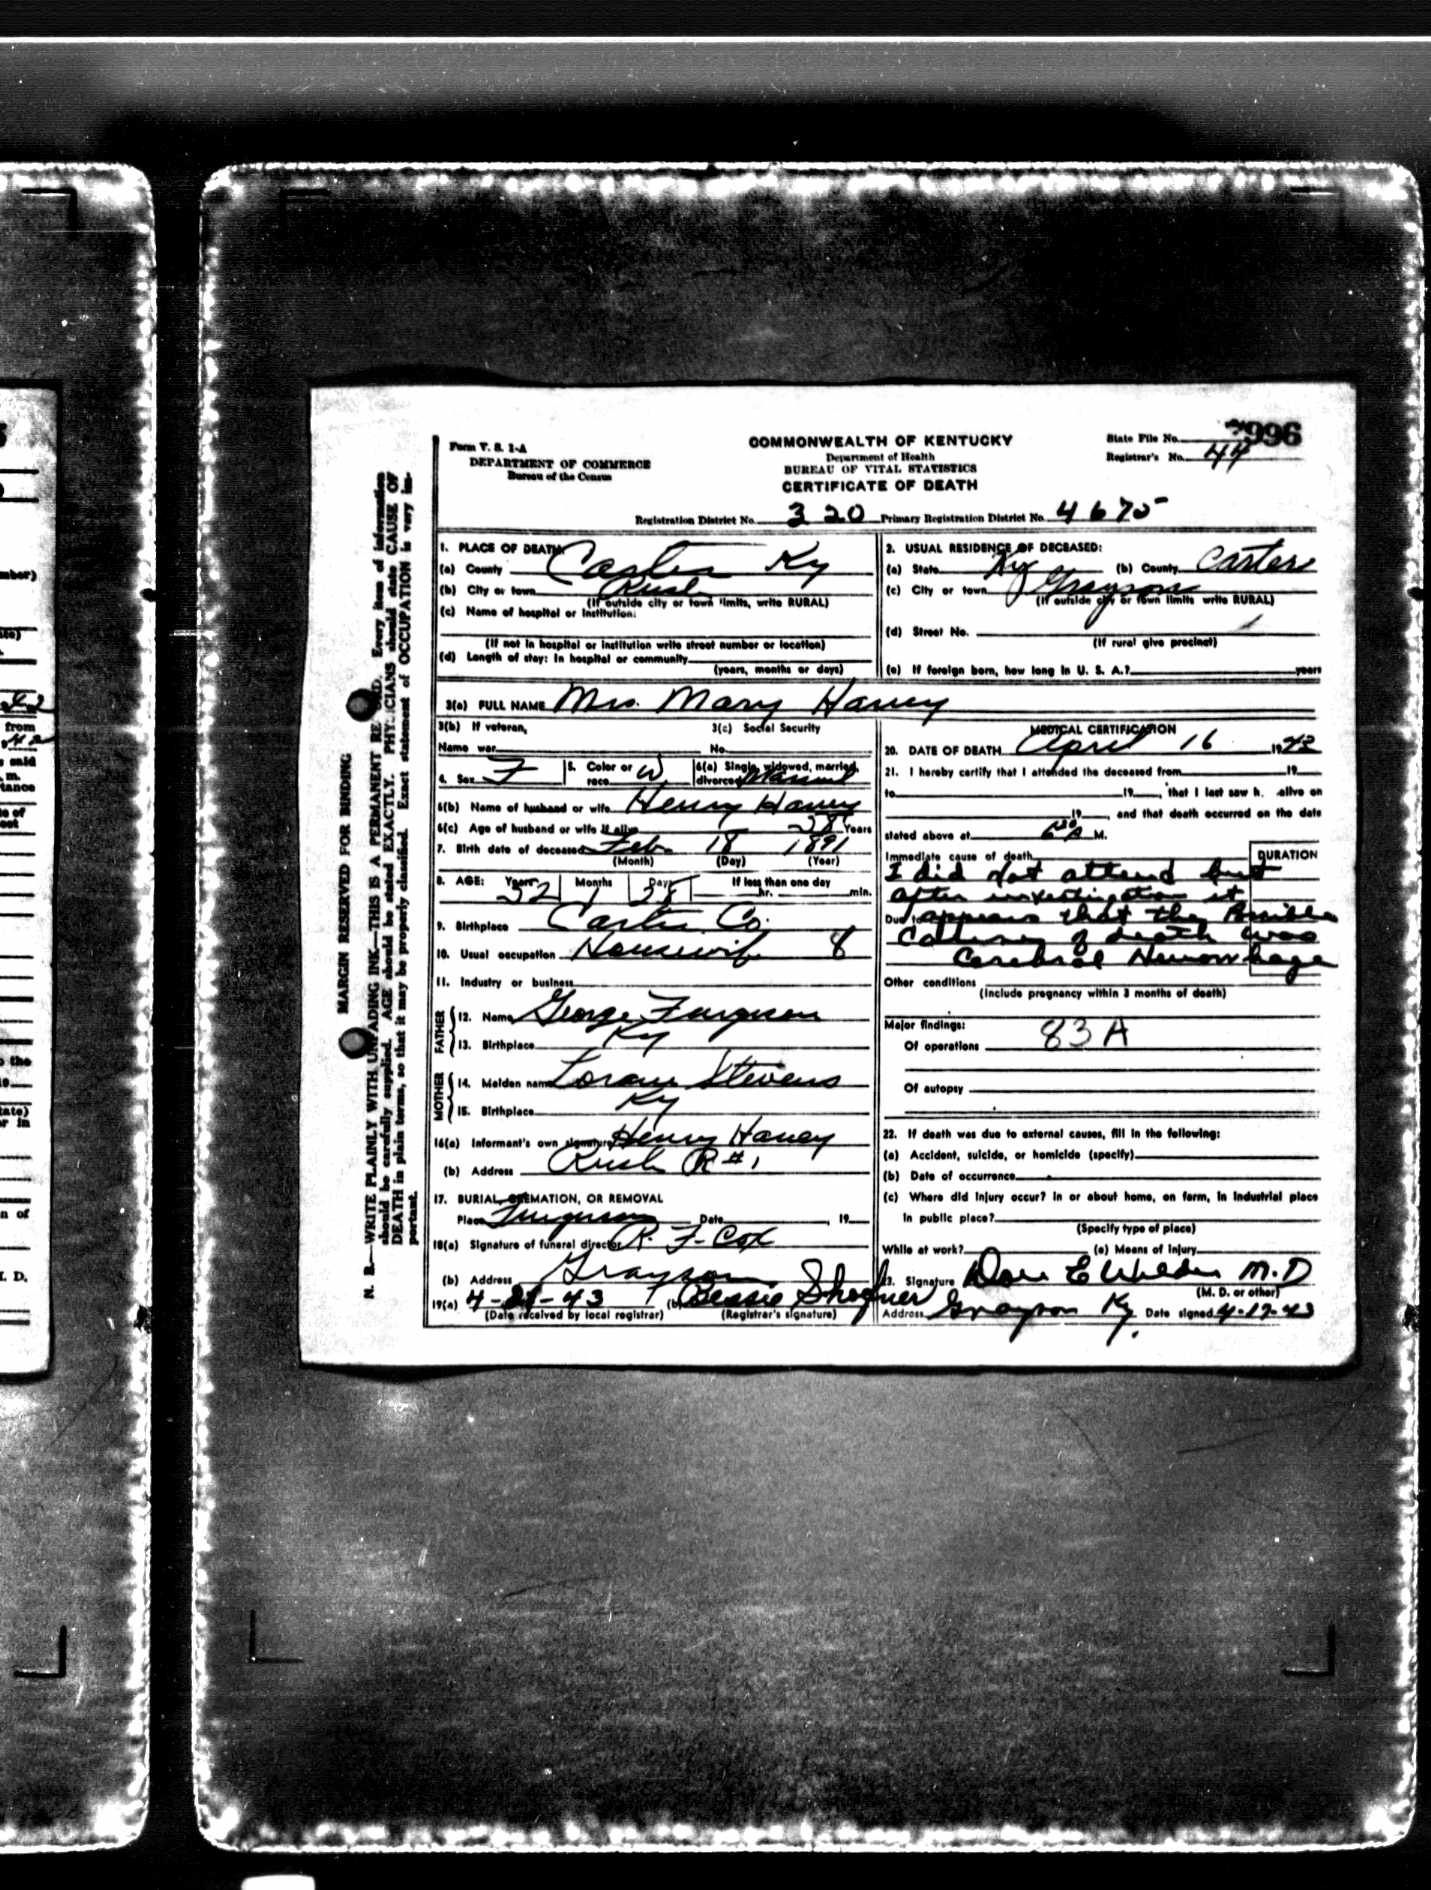 Form V. S. 1-A
DEPARTMENT OF COMMERCE
Bureau of the Census
COMMONWEALTH OF KENTUCKY
Department of Health
BUREAU OF VITAL STATISTICS
CERTIFICATE OF DEATH
State File No. 996
Registrar's No. 44
Registration District No. 320 Primary Registration District No. 4675
MARGIN RESERVED FOR BINDING
N. B.—WRITE PLAINLY WITH UNFADING INK—THIS IS A PERMANENT RECORD. Every item of information
should be carefully supplied. AGE should be stated EXACTLY. PHYSICIANS should state CAUSE OF
DEATH in plain terms, so that it may be properly classified. Exact statement of OCCUPATION is very im-
portant.
1. PLACE OF DEATH:
(a) County Carter Ky
(b) City or town Rush
(If outside city or town limits, write RURAL)
(c) Name of hospital or institution:
(If not in hospital or institution write street number or location)
(d) Length of stay: In hospital or community
(years, months or days)
2. USUAL RESIDENCE OF DECEASED:
(a) State Ky (b) County Carter
(c) City or town Grayson
(If outside city or town limits write RURAL)
(d) Street No.
(If rural give precinct)
(e) If foreign born, how long in U. S. A.? years
3(a) FULL NAME Mrs. Mary Haney
3(b) If veteran, 3(c) Social Security
Name war No.
4. Sex F 5. Color or race W 6(a) Single, widowed, married, divorced Married
6(b) Name of husband or wife Henry Haney
6(c) Age of husband or wife if alive Years
7. Birth date of deceased Feb. 18 1891
(Month) (Day) (Year)
8. AGE: Years 52 Months 1 Days 28 If less than one day
hr. min.
9. Birthplace Carter Co.
10. Usual occupation Housewife 8
11. Industry or business
FATHER
12. Name George Ferguson
13. Birthplace Ky
MOTHER
14. Maiden name Stevens
15. Birthplace Ky
16(a) Informant's own signature Henry Haney
(b) Address Rush R #1
17. BURIAL, CREMATION, OR REMOVAL
Place Ferguson Date , 19
18(a) Signature of funeral director R. F. Cox
(b) Address Grayson
19(a) 4-21-43 (b) Bessie Shoffner
(Date received by local registrar) (Registrar's signature)
MEDICAL CERTIFICATION
20. DATE OF DEATH April 16 1943
21. I hereby certify that I attended the deceased from 19
to 19 , that I last saw h alive on
19 , and that death occurred on the date
stated above at 6:30 A M.
Immediate cause of death DURATION
I did not attend but
after investigation it
Due to appears that the Possible
of death was
Cerebral Hemorrhage
Other conditions
(Include pregnancy within 3 months of death)
Major findings:
Of operations 83A
Of autopsy
22. If death was due to external causes, fill in the following:
(a) Accident, suicide, or homicide (specify)
(b) Date of occurrence
(c) Where did injury occur? In or about home, on farm, in industrial place
in public place?
(Specify type of place)
While at work? (e) Means of injury
23. Signature M.D
(M. D. or other)
Address Grayson Ky. Date signed 4-17-43